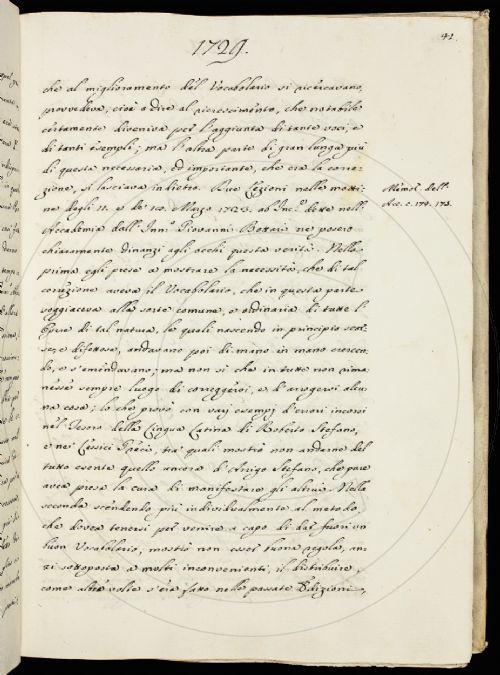 41.
1729.
che al miglioramento del Vocabolario si ricercavano,
provvedeva, cioè a dire al ricrescimento, che notabile
certamente diveniva per l'aggiunta di tante voci, e
di tanti esempli; ma l'altra parte di gran lunga più
di questa necessaria, ed importante, che era la corre-
zione, si lasciava indietro. Due Lezioni nelle matti-
ne degli 11. e de' Marzo 1723. ab Inc.e dette nell'
Accademia dall'Inn.o Giovanni Bottari ne posero
chiaramente dinanzi agli occhi questa verità. Nella
prima egli prese a mostrare la necessità, che di tal
correzione aveva il Vocabolario, che in questa parte
soggiaceva alla sorte comune, e ordinaria di tutte l'
Opere di tal natura, le quali nascendo in principio scar-
se, e difettose, andavano poi di mano in mano crescen-
do, e s'emendavano; ma non sì che in tutte non rima-
nesse sempre luogo di correggersi, e d'arrogersi alcu-
na cosa; lo che provò con varj esempj d'errori incorsi
nel Tesoro della Lingua Latina di Roberto Stefano,
e ne' Lessici Greci, tra' quali mostrò non andarne del
tutto esente quello ancora d'Arrigo Stefano, che pure
avea presa la cura di manifestare gli altrui. Nella
seconda scendendo più individualmente al metodo,
che dovea tenersi per venire a capo di dar fuori un
buon Vocabolario, mostrò non esser buona regola, an-
zi sottoposta a molti inconvenienti, il distribuire,
come altre volte s'era fatto nelle passate Edizioni,
Memor. dell'
Acc. c. 174. 175.